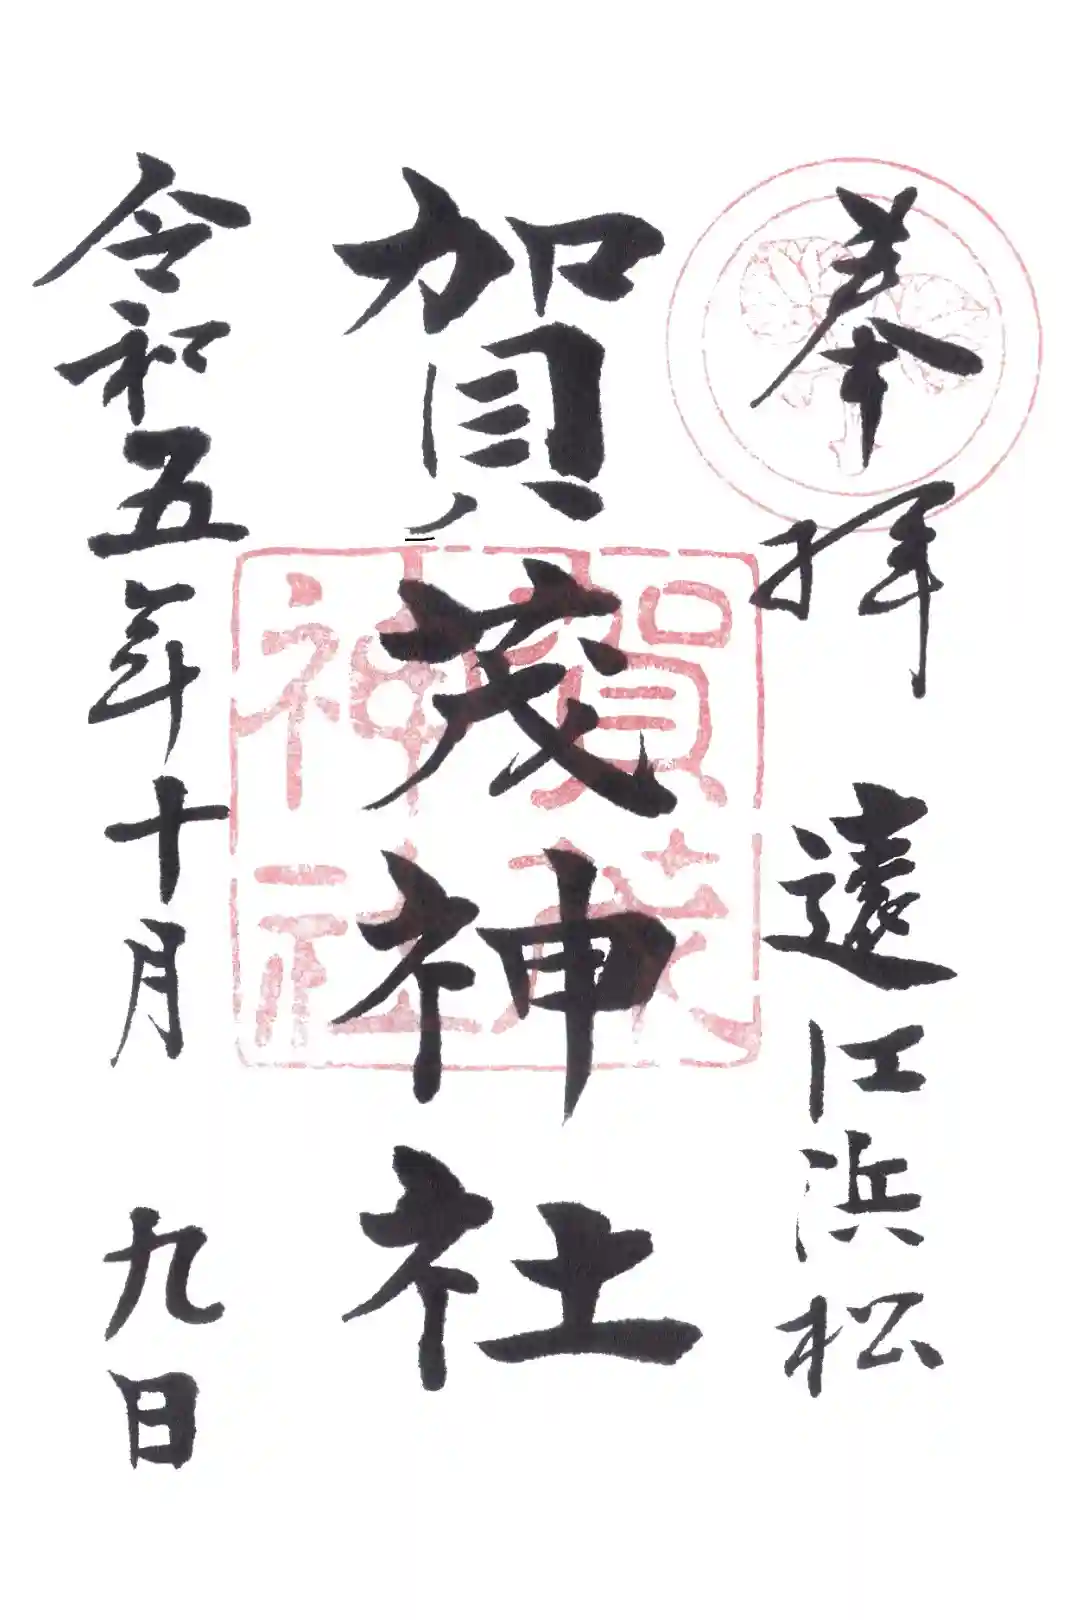 奉拝 遠江浜松
賀茂神社
賀茂
神社
令和五年十月九日